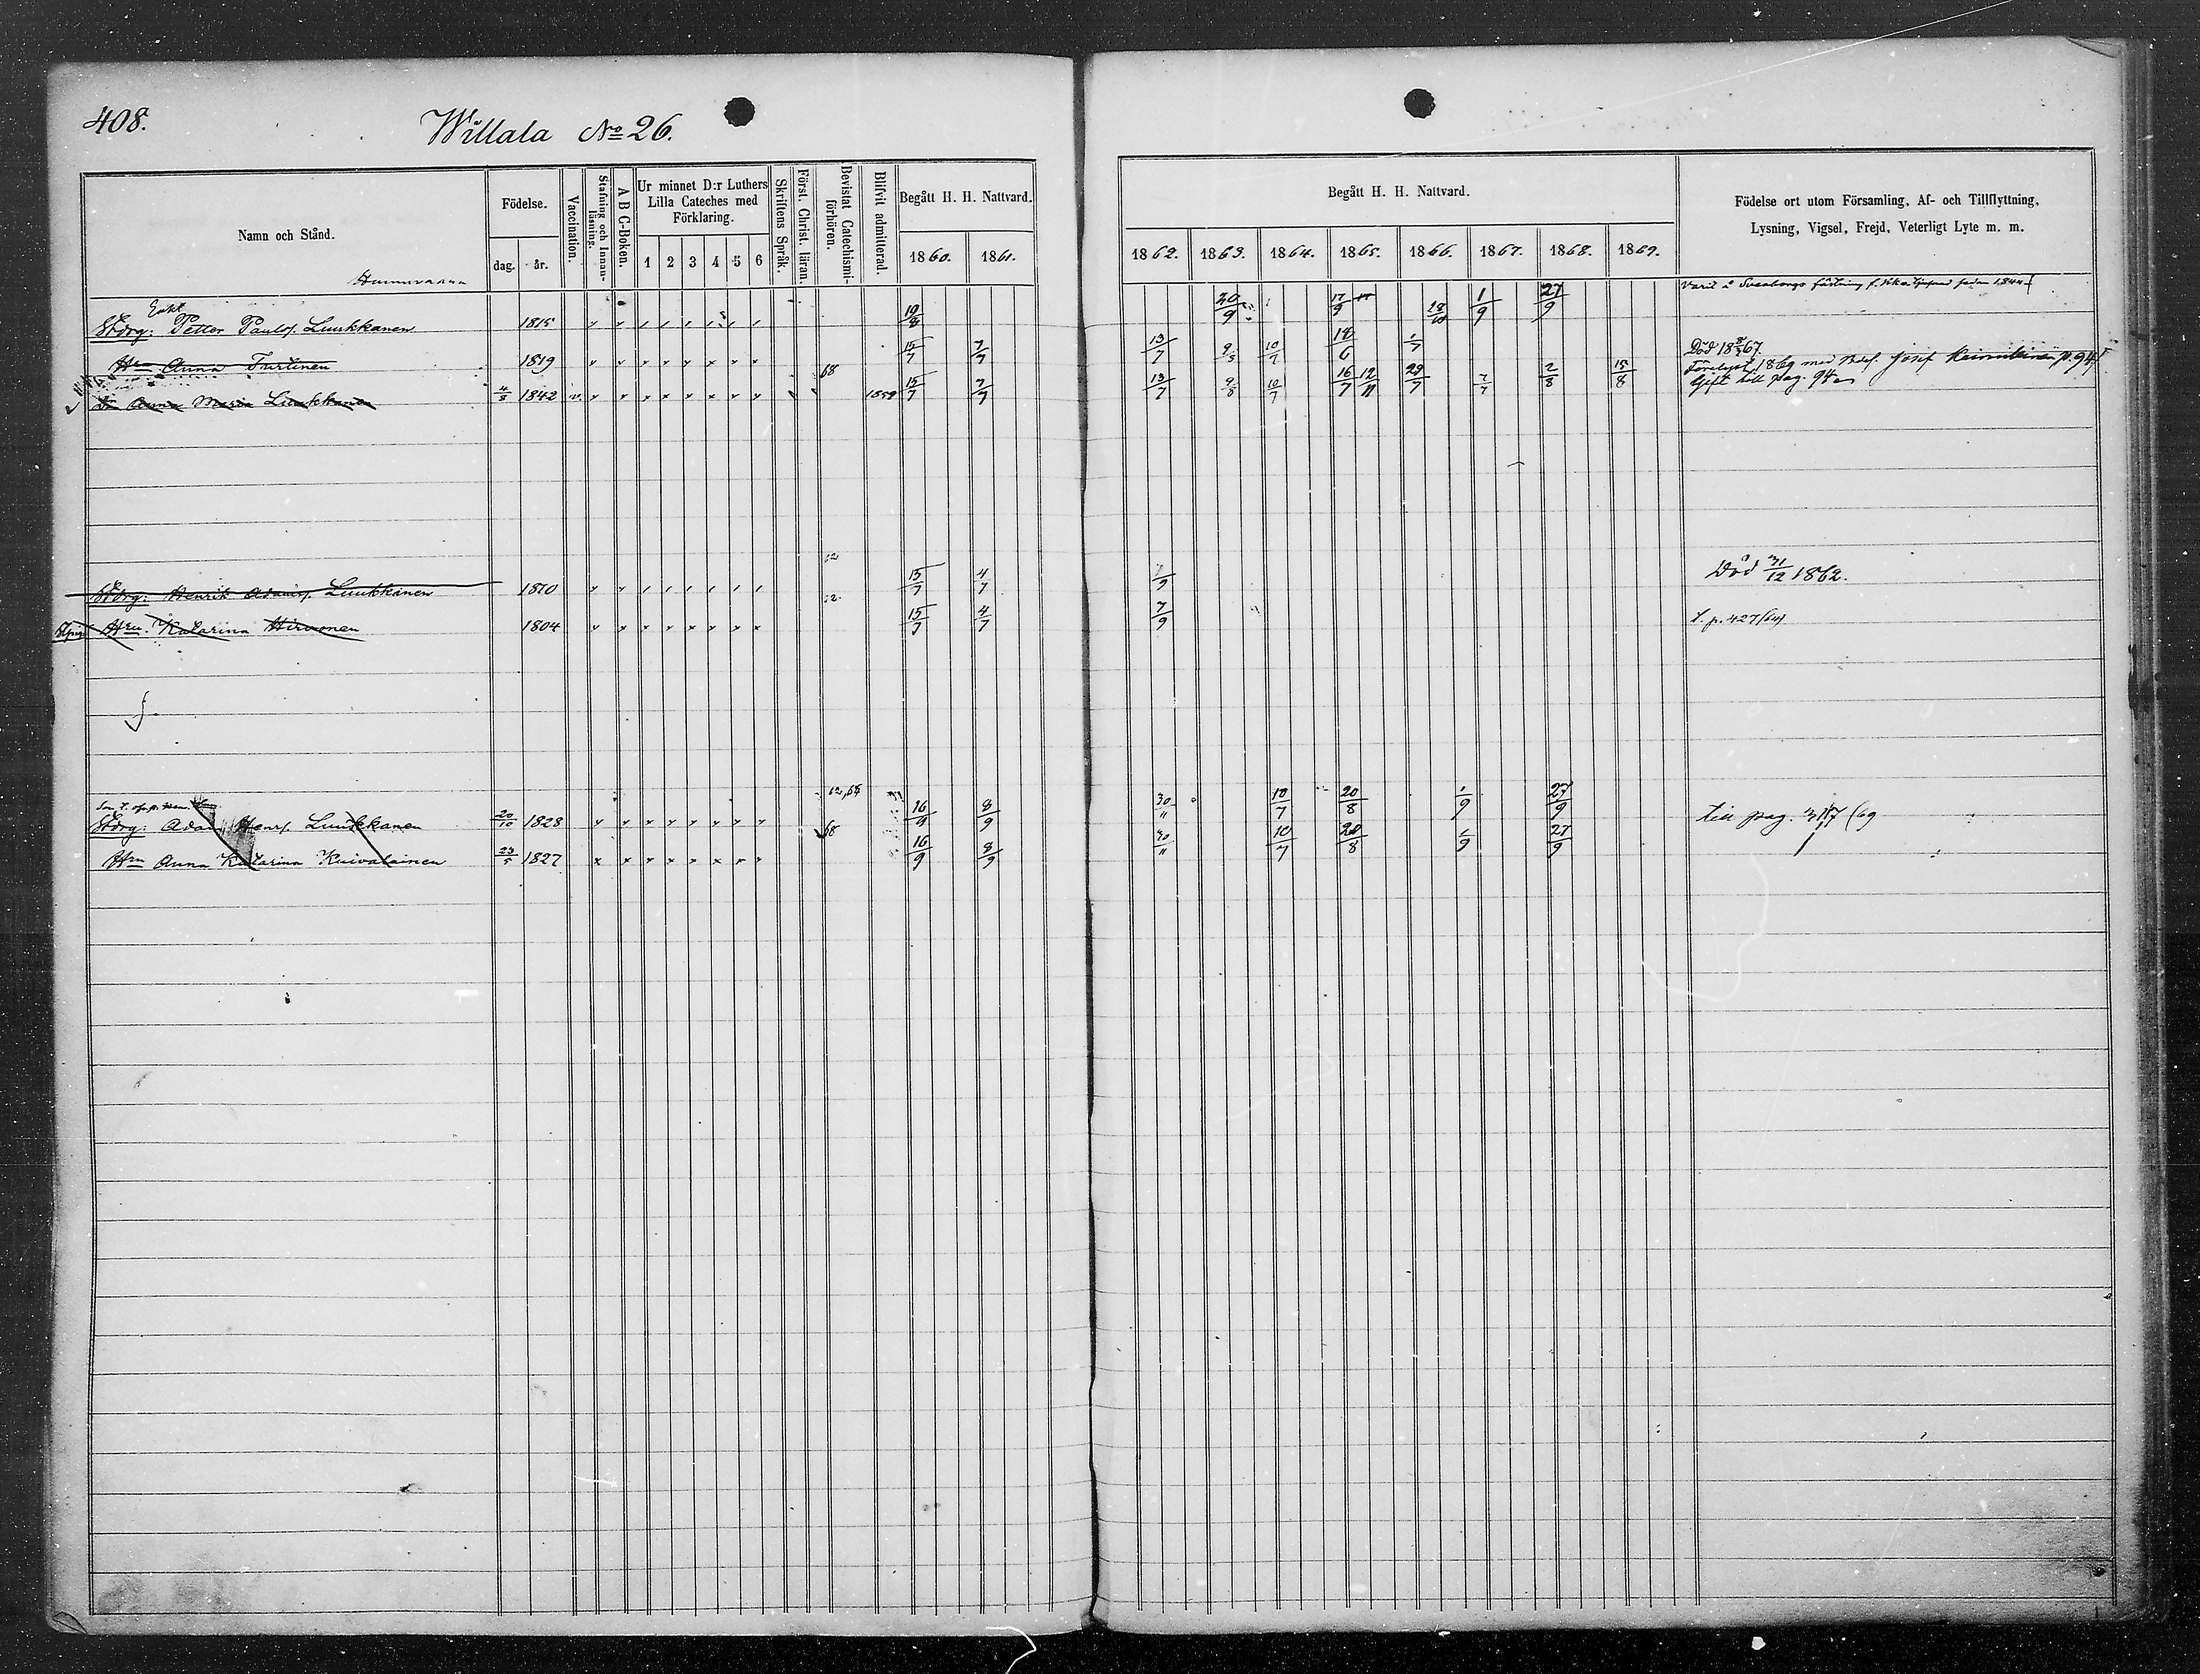 408.
Willala No 26.
Namn och Stånd.
Födelse.
dag.
år.
Vaccination.
Stafning och Innan-
läsning.
A B C-Boken.
Ur minnet D:r Luthers
Lilla Cateches med
Förklaring.
1 2 3 4 5 6
Skriftens Språk.
Först. Christ. läran.
Bevistat Catechismi-
förhören.
Blifvit admitterad.
Begått H. H. Nattvard.
1860. 1861.
Begått H. H. Nattvard.
1862. 1863. 1864. 1865. 1866. 1867. 1868. 1869.
Födelse ort utom Församling, Af- och Tillflyttning,
Lysning, Vigsel, Frejd, Veterligt Lyte m. m.
Enkl
Petter Paulss. Luukkanen 1815 19/8 20/9 17/9 1/9 27/9
Hru Anna Turtinen 1819 15/7 7/7 13/7 9/8 10/7 18/6 Död 67.
Anna Maria Luukkanen 4/5 1842 68 1859 15/7 7/7 13/7 9/8 10/7 16/7 12/11 29/7 7/7 2/8 15/8 Gift till pag. 94
Henrik Adamss. Luukkanen 1810 62 15/7 4/7 Död 31/12 1862.
Hru. Katarina Hirvonen 1804 62 15/7 4/7 7/9 t. p. 427/64
Adam Henrs. Luukkanen 20/10 1828 62,65 16/9 8/9 30/11 10/7 20/8 27/9 till pag. 317 (69
Hru Anna Katarina Kuivalainen 23/5 1827 68 16/9 8/9 30/11 10/7 20/8 27/9